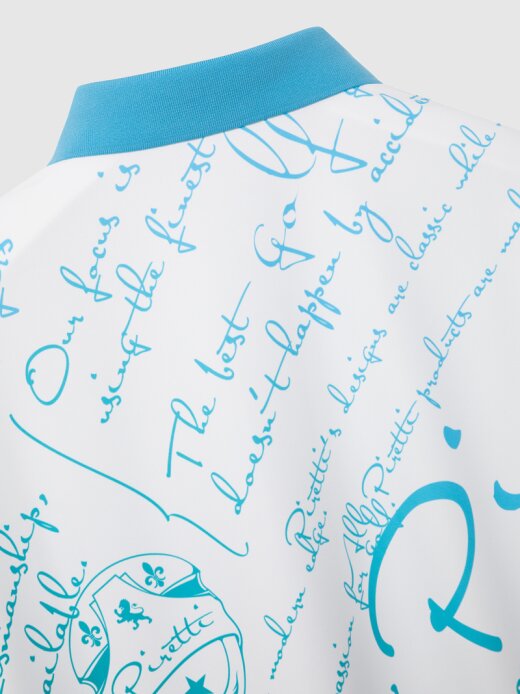 Our focus is
using the finest
The best
doesn't happen by accid
Go
Piretti's designs are classic while
modern edge.
All Piretti products are ma
assion for
smanship,
ailable.
Piretti
Pi